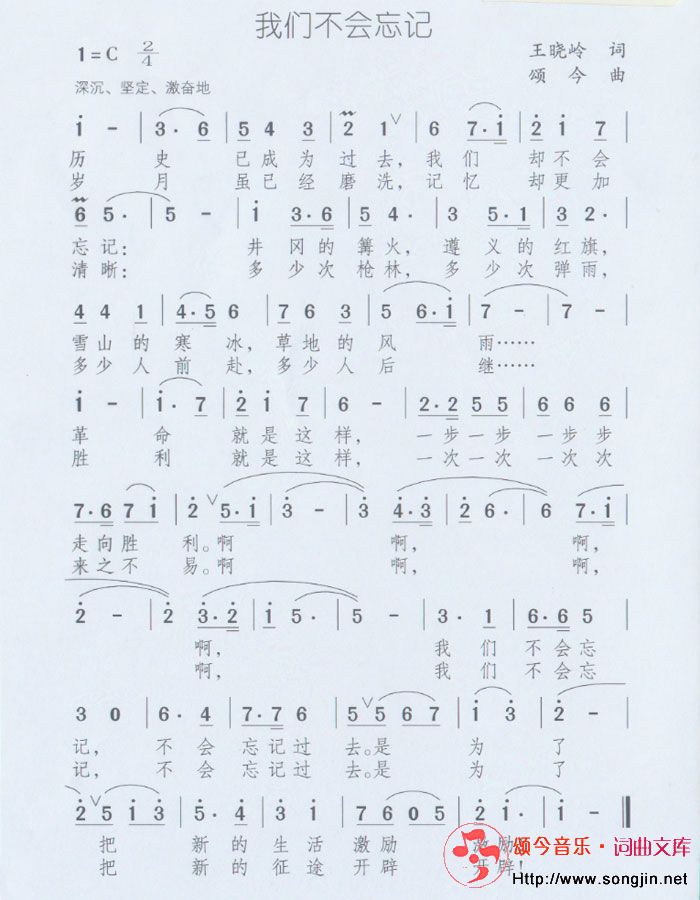 我们不会忘记
1=C 2/4
王晓岭 词
深沉、坚定、激奋地
颂今 曲
历 史 已成为过去，我们 却不会
岁 月 虽已经磨洗，记忆 却更加
忘记： 井冈的篝火，遵义的红旗，
清晰： 多少次枪林，多少次弹雨，
雪山的寒冰，草地的风 雨……
多少人前赴，多少人后 继……
革 命 就是这样，一步一步一步步
胜 利 就是这样，一次一次一次次
走向胜 利。啊 啊， 啊，
来之不 易。啊 啊， 啊，
啊， 我们不会忘
啊， 我们不会忘
记， 不会忘记过 去。是 为 了
记， 不会忘记过 去。是 为 了
把 新的生活激励 激励
把 新的征途开辟 开辟！
颂今音乐·词曲文库
Http://www.songjin.net